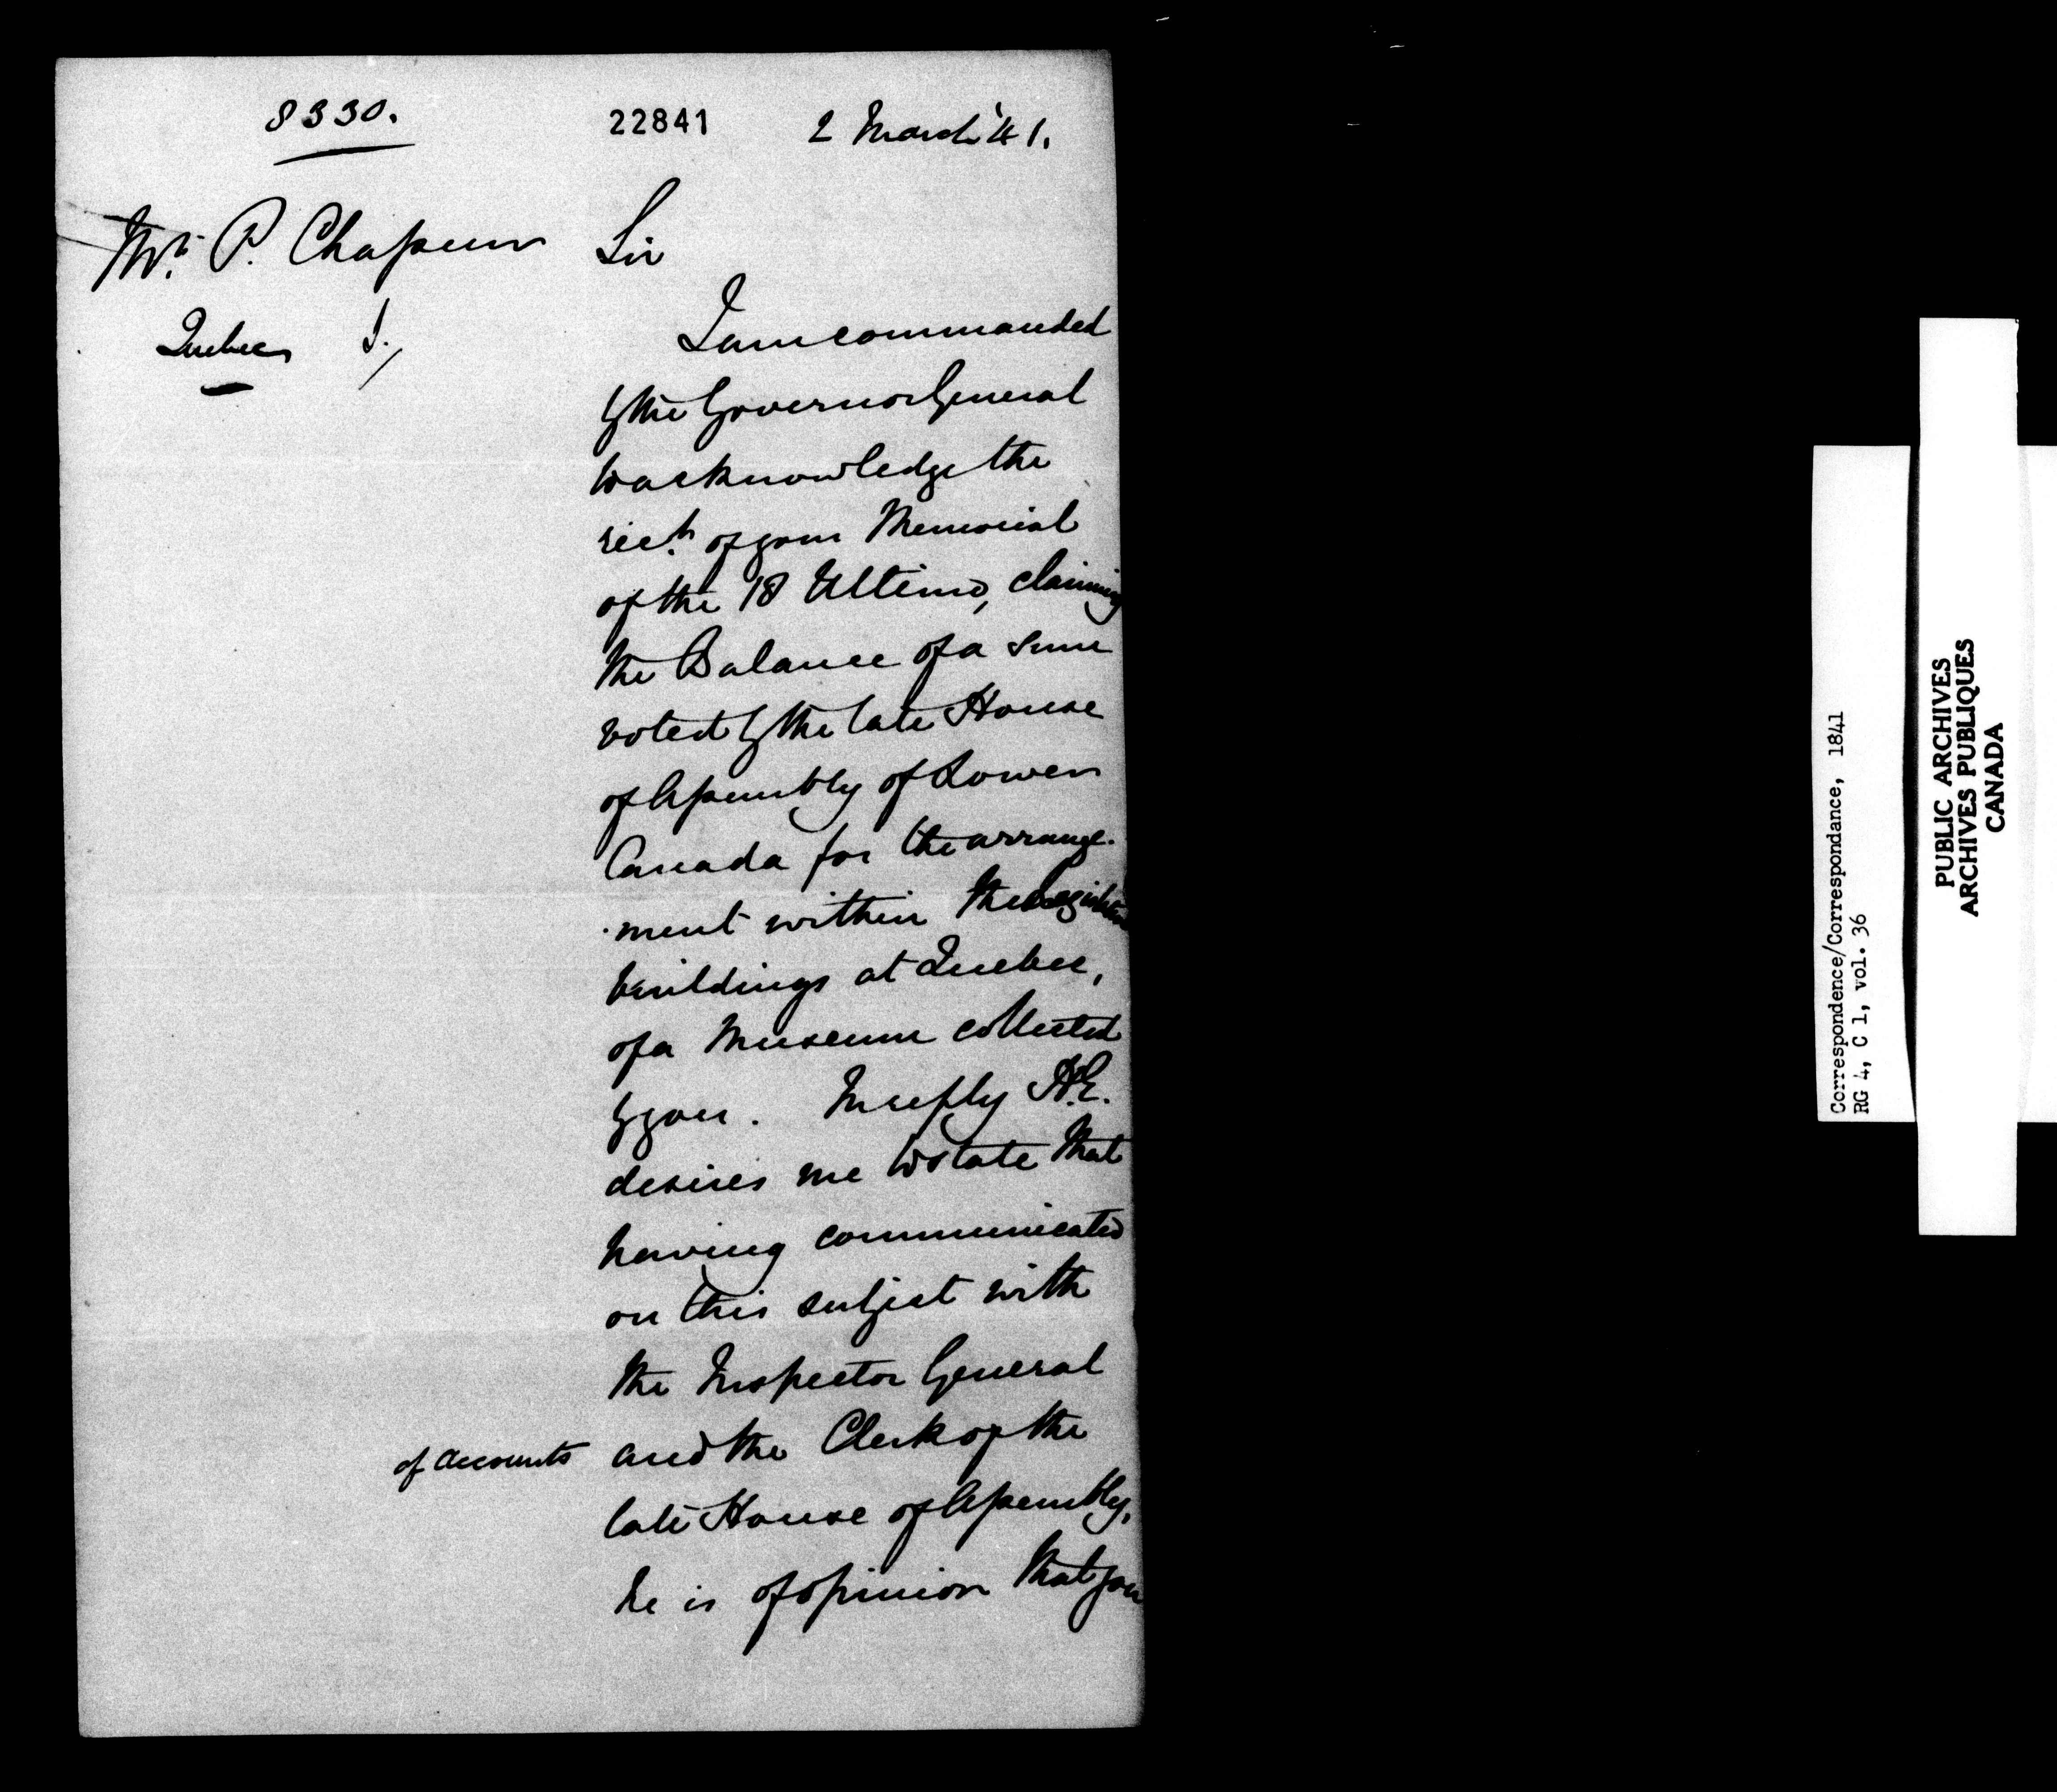 8330.
22841
2 March '41.
Mr. P. Chasseur
Quebec
Sir
I am commanded
by the Governor General
to acknowledge the
rect. of your Memorial
of the 18 Ultimo, claiming
the Balance of a sum
voted by the late House
of Assembly of Lower
Canada for the arrange-
-ment within the Legislative
buildings at Quebec,
of a Museum collected
by you. In reply H.E.
desires me to state that
having communicated
on this subject with
the Inspector General
of accounts
and the Clerk of the
late House of Assembly,
he is of opinion that you
Correspondence/Correspondance, 1841
RG 4, C 1, vol. 36
PUBLIC ARCHIVES
ARCHIVES PUBLIQUES
CANADA